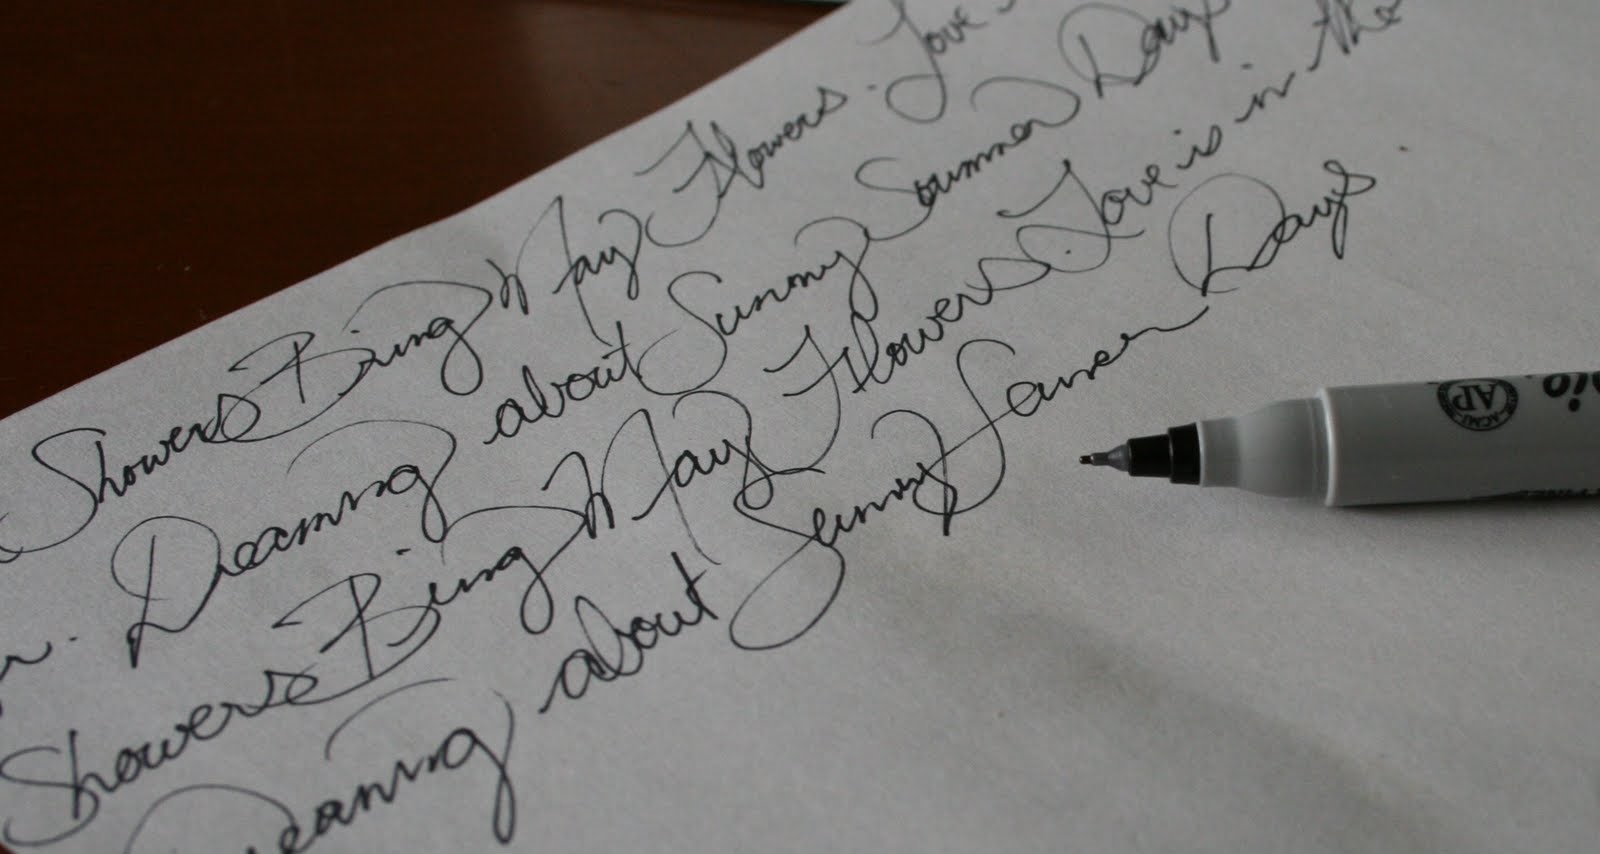 Showers Bring May Flowers. Love
Dreaming about Sunny Summer Days
Showers Bring May Flowers. Love is in the
Dreaming about Sunny Summer Days.
AP
ACMI